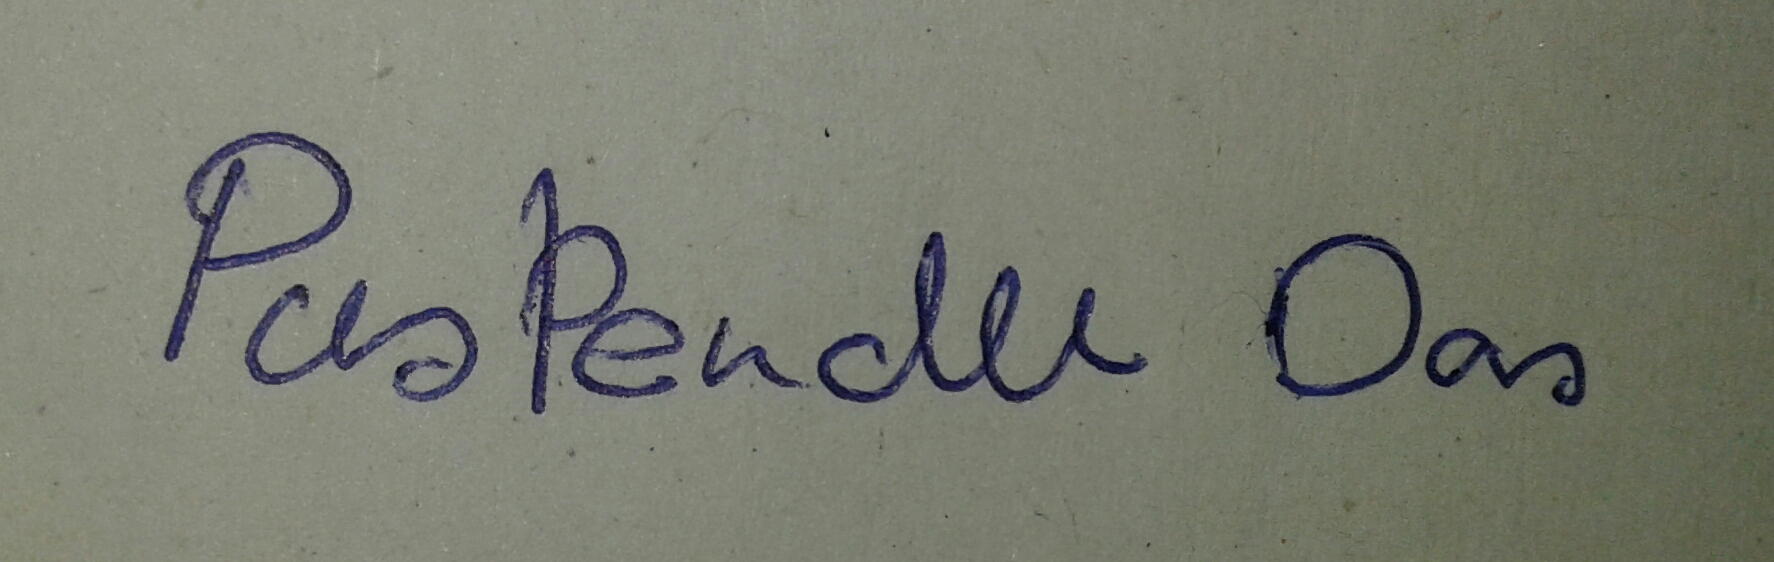 Puspendu Das